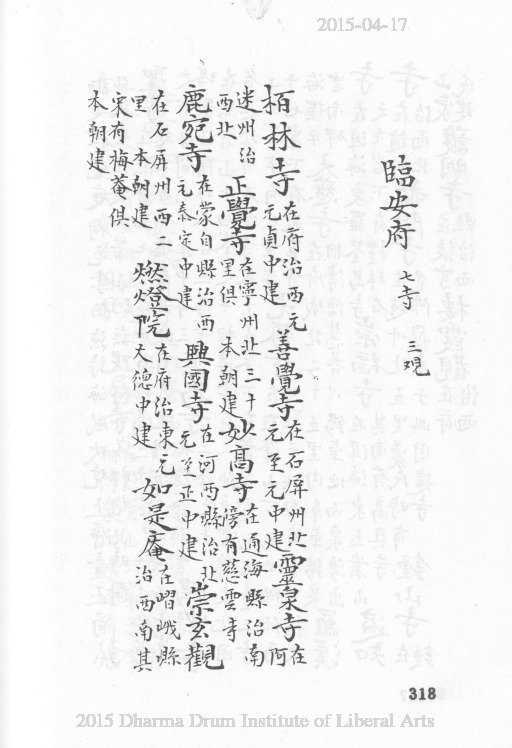 2015-04-17
臨安府 七寺 三覌
栢林寺 在府治西元元貞中建 善覺寺 在石屏州北元至元中建 靈泉寺 在阿
迷州治西北 正覺寺 在寧州北三十一里俱本朝建 妙高寺 在通海縣治南傍有慈雲寺
鹿宛寺 在蒙自縣治西元泰定中建 興國寺 在河西縣治北元至正中建 崇玄觀
在石屏州西二里本朝建 燃燈院 在府治東元大德中建 如是庵 在嶍峨縣治西南其
宋有梅菴俱本朝建
318
2015 Dharma Drum Institute of Liberal Arts